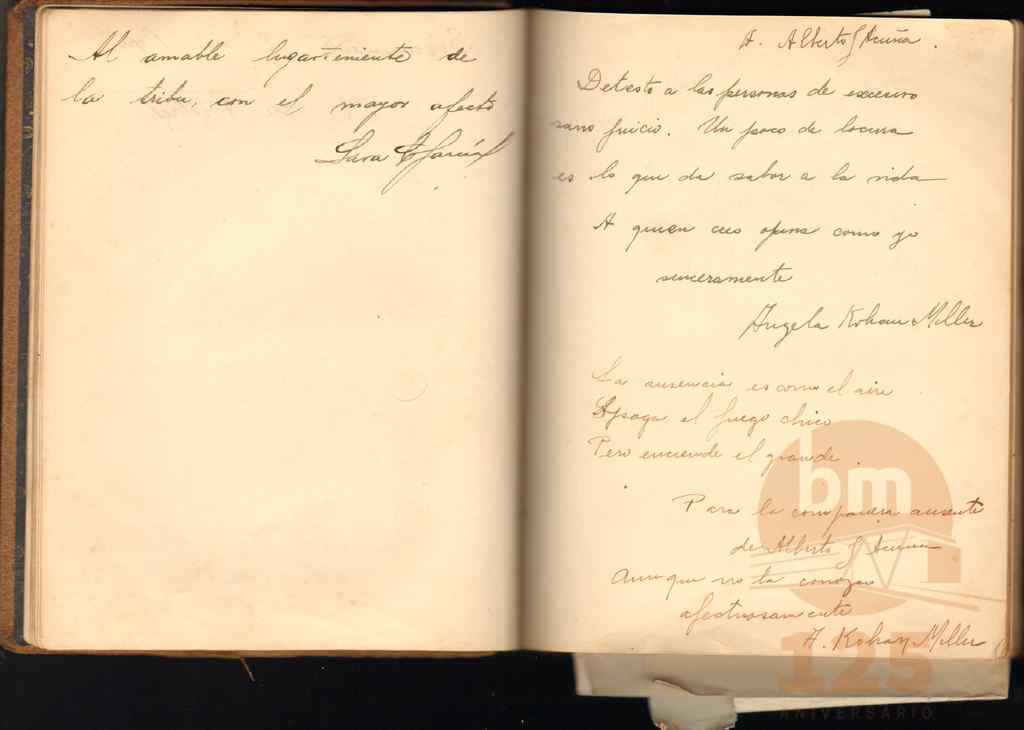 Al amable lugarteniente de
la tribu, con el mayor afecto
Sara
A. Alberto G Acuña.
Detesto a las personas de excesivo
sano juicio. Un poco de locura
es lo que da sabor a la vida
A quien creo opina como yo
sinceramente
Angela Kohan Miller
La ausencia es como el aire
Apaga el fuego chico
Pero enciende el grande.
Para la compañera ausente
de Alberto G Acuña
Aunque no la conozco
afectuosamente
A. Kohan Miller
bm
125
ANIVERSARIO